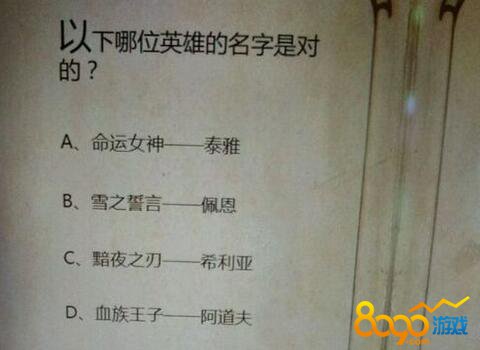 以下哪位英雄的名字是对
的？
A、命运女神——泰雅
B、雪之誓言——佩恩
C、黯夜之刃——希利亚
D、血族王子——阿道夫
8090游戏